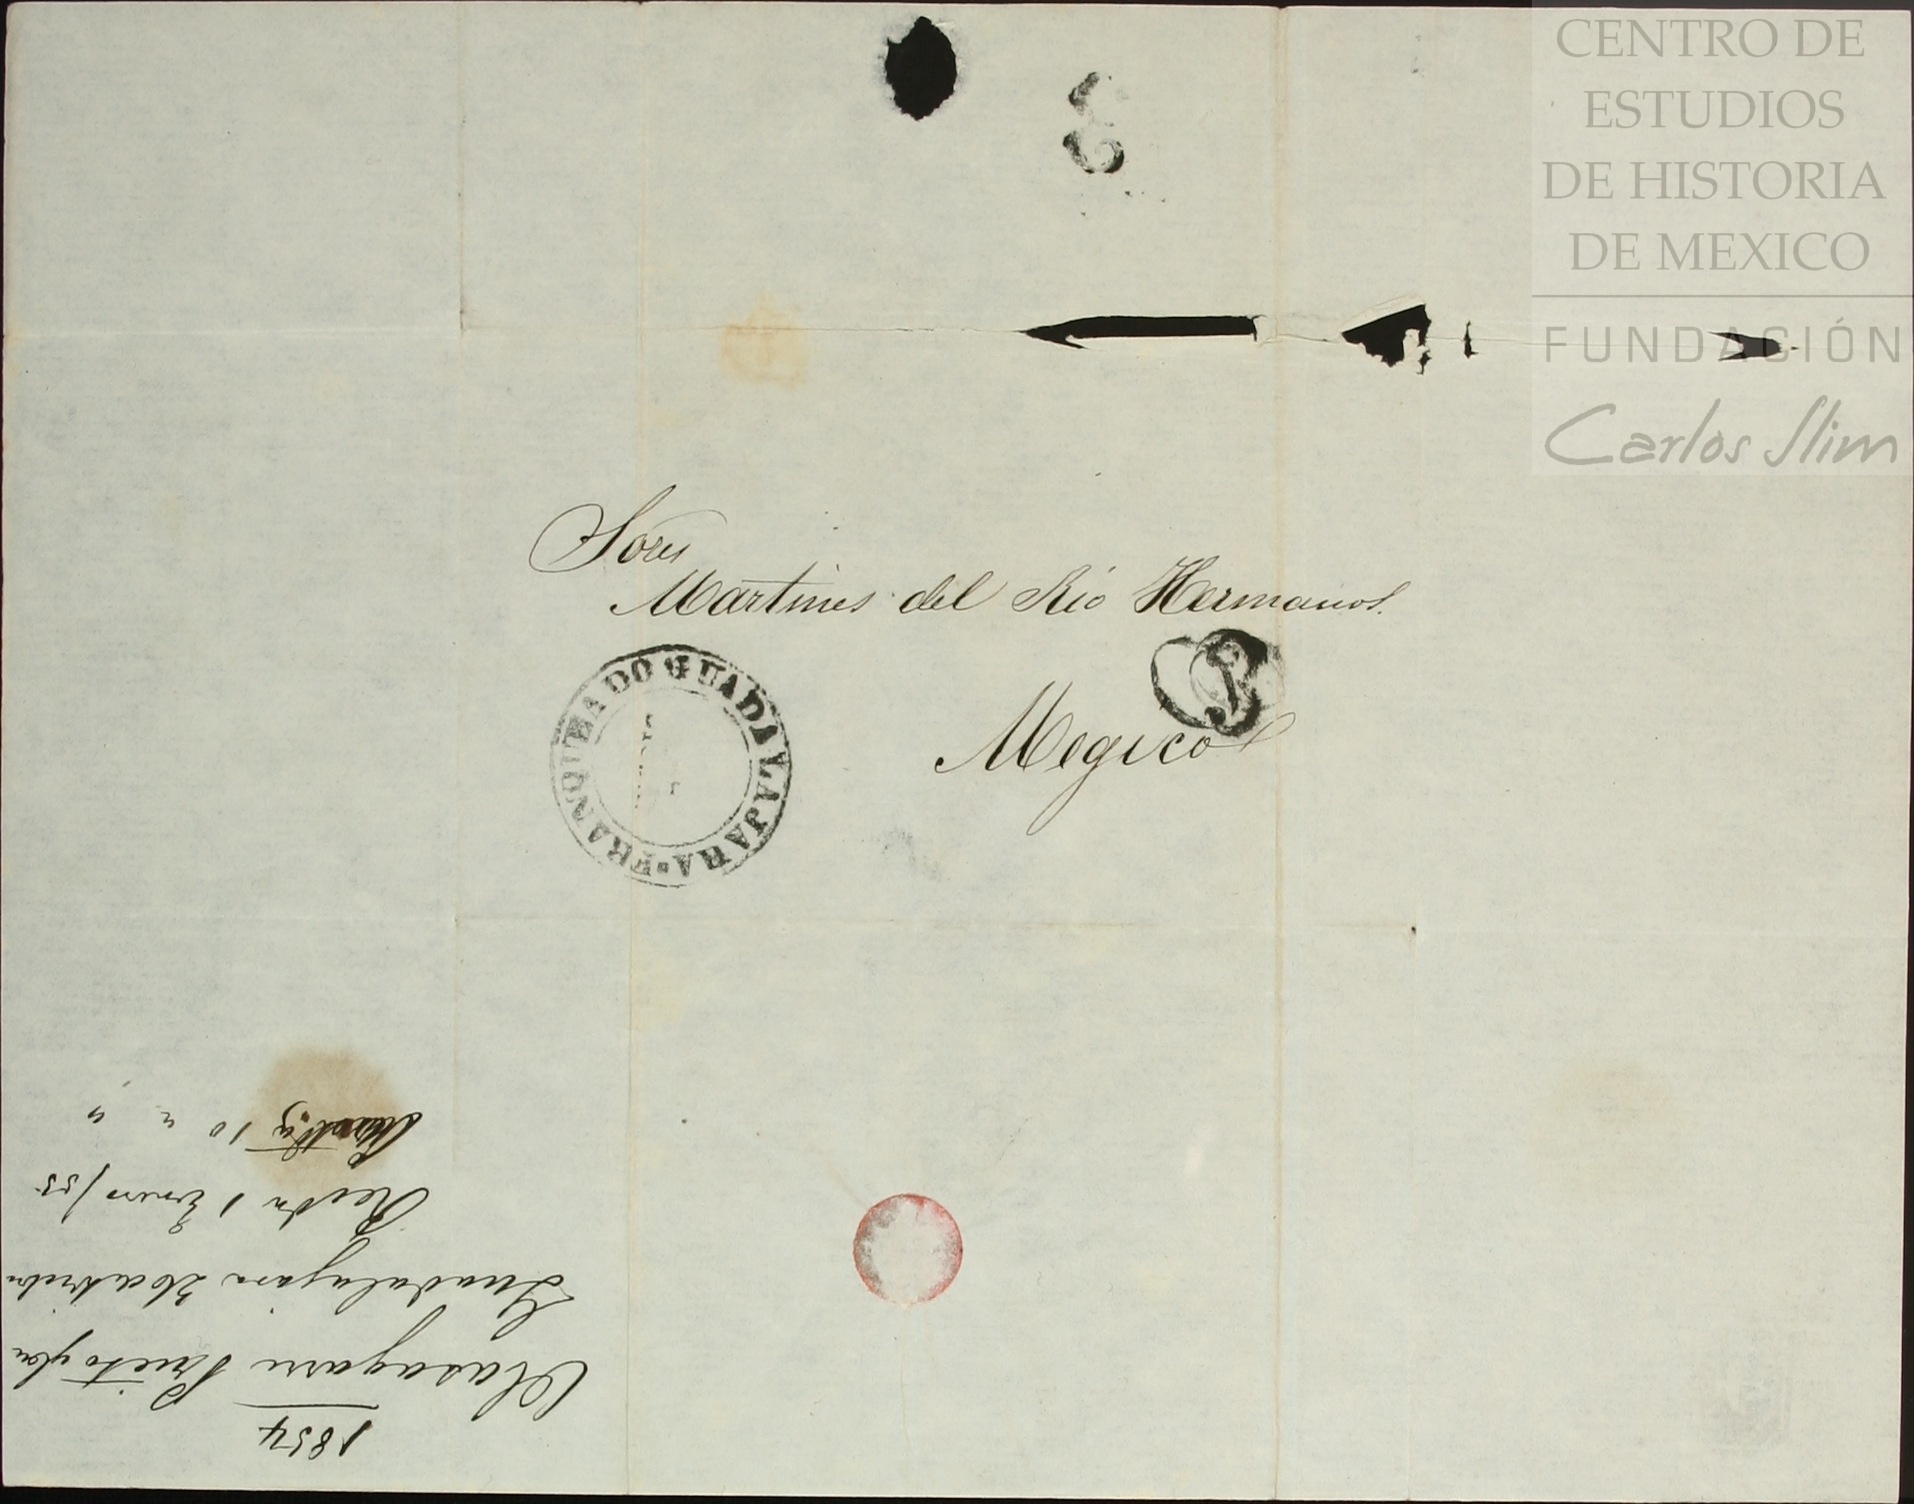 CENTRO DE
ESTUDIOS
DE HISTORIA
DE MEXICO
FUNDACIÓN
Carlos Slim
3
Sores
Martines del Rio Hermanos.
Megico
FRANQUEADO GUADALAJARA
1854
Olasagarre Prieto y Ca
Guadalajara
1 Enero /55
10 " "